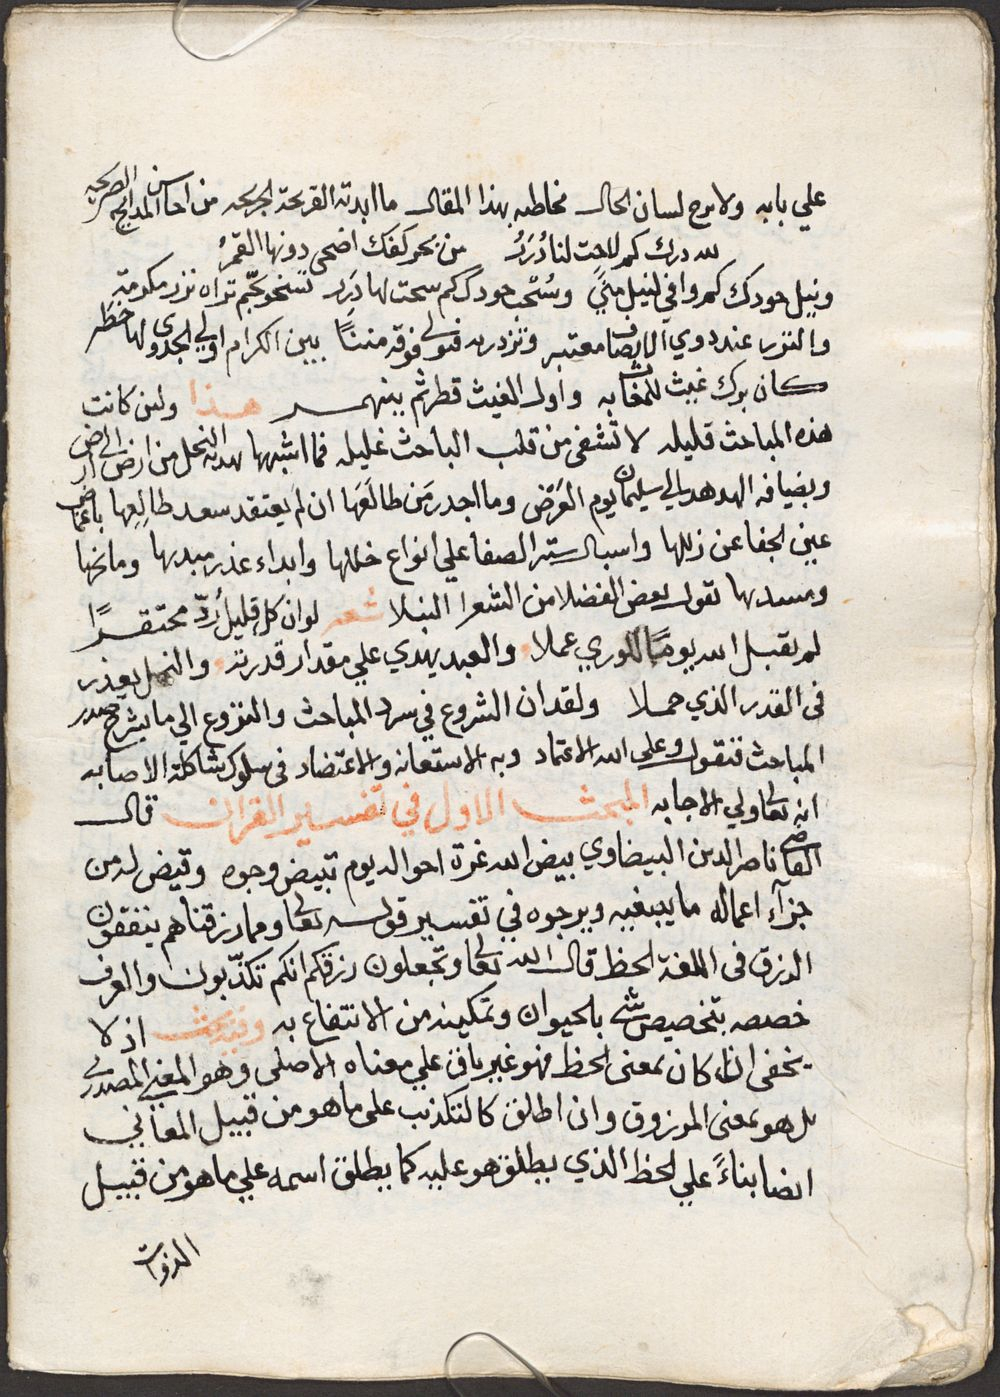 علي بابه ولا برح لسان الحال مخاطبه بهذا المقال ما ابدته القريحة الجريحه من احاسن المدايح الصريحه
لله درك كم لاحت لنا دُرَرُ من بحر كفك اضحى دونها القمرُ
ونيل جودك كم وافي لنيل مني وسُحْب جودك كم سحت لها دِرَر تسخو بجم تراه نزر مكرمة
والنزر عند ذوي الايصاب معتبر وتزدريه فتولي فوقه مننًا بين الكرام اولي الجدوي لها خطَر
كان نوك غيث للمغاث به واول الغيث قطر ثم ينهمر هذا ولين كانت
هذه المباحث قليله لا تشفى من قلب الباحث غليله فما اشبهها بهدية النحل من ارض الي ارض
وبضيافه الهدهد الي سليمان يوم العَرْض وما اجدر مَن طالعَها ان لم يعتقد سعد طالِعِها باغماض
عين الجفا عن زللها واسبال ستر الصفا علي انواع خللها وابداء عذر مبديها وما نحها
ومسديها تقول بعض الفضلا من الشعرا النبلا شعر لو ان كل قليل رُدّ محتقرًا
لم يقبل الله يومًا للوري عملا والعبد يهدي علي مقدار قدرته والنمل يعذر
فى القدر الذي حملا ولقد ان الشروع في سرد المباحث والنزوع الي ما يشرح صدر
المباحث فنقول وعلى الله الاعتماد وبه الاستعانه والاعتضاد فى سلوك شاكلة الاصابه
انه تعالى ولي الاجابه المبحث الاول في تفسير القران قال
القاضي ناصر الدين البيضاوي بيض الله غرة احواله يوم تبيض وجوه وقيض له من
جزآء اعماله ما يبتغيه ويرجوه في تفسير قوله تعالى ومما رزقناهم ينفقون
الرزق فى اللغة الحظ قال الله تعالى وتجعلون رزقكم انكم تكذّبون والعرف
خصصه بتخصيص شئ بالحيوان وتمكينه من الانتفاع به وفيه بحث اذ لا
يخفى انه اذا كان بمعنى الحظ فهو غير باق علي معناه الاصلى وهو المعني المصدري
بل هو بمعنى المرزوق وان اطلق كالتكذيب على ما هو من قبيل المعاني
ايضا بناءً علي الحظ الذي يطلق هو عليه كما يطلق اسمه علي ما هو من قبيل
الذوات